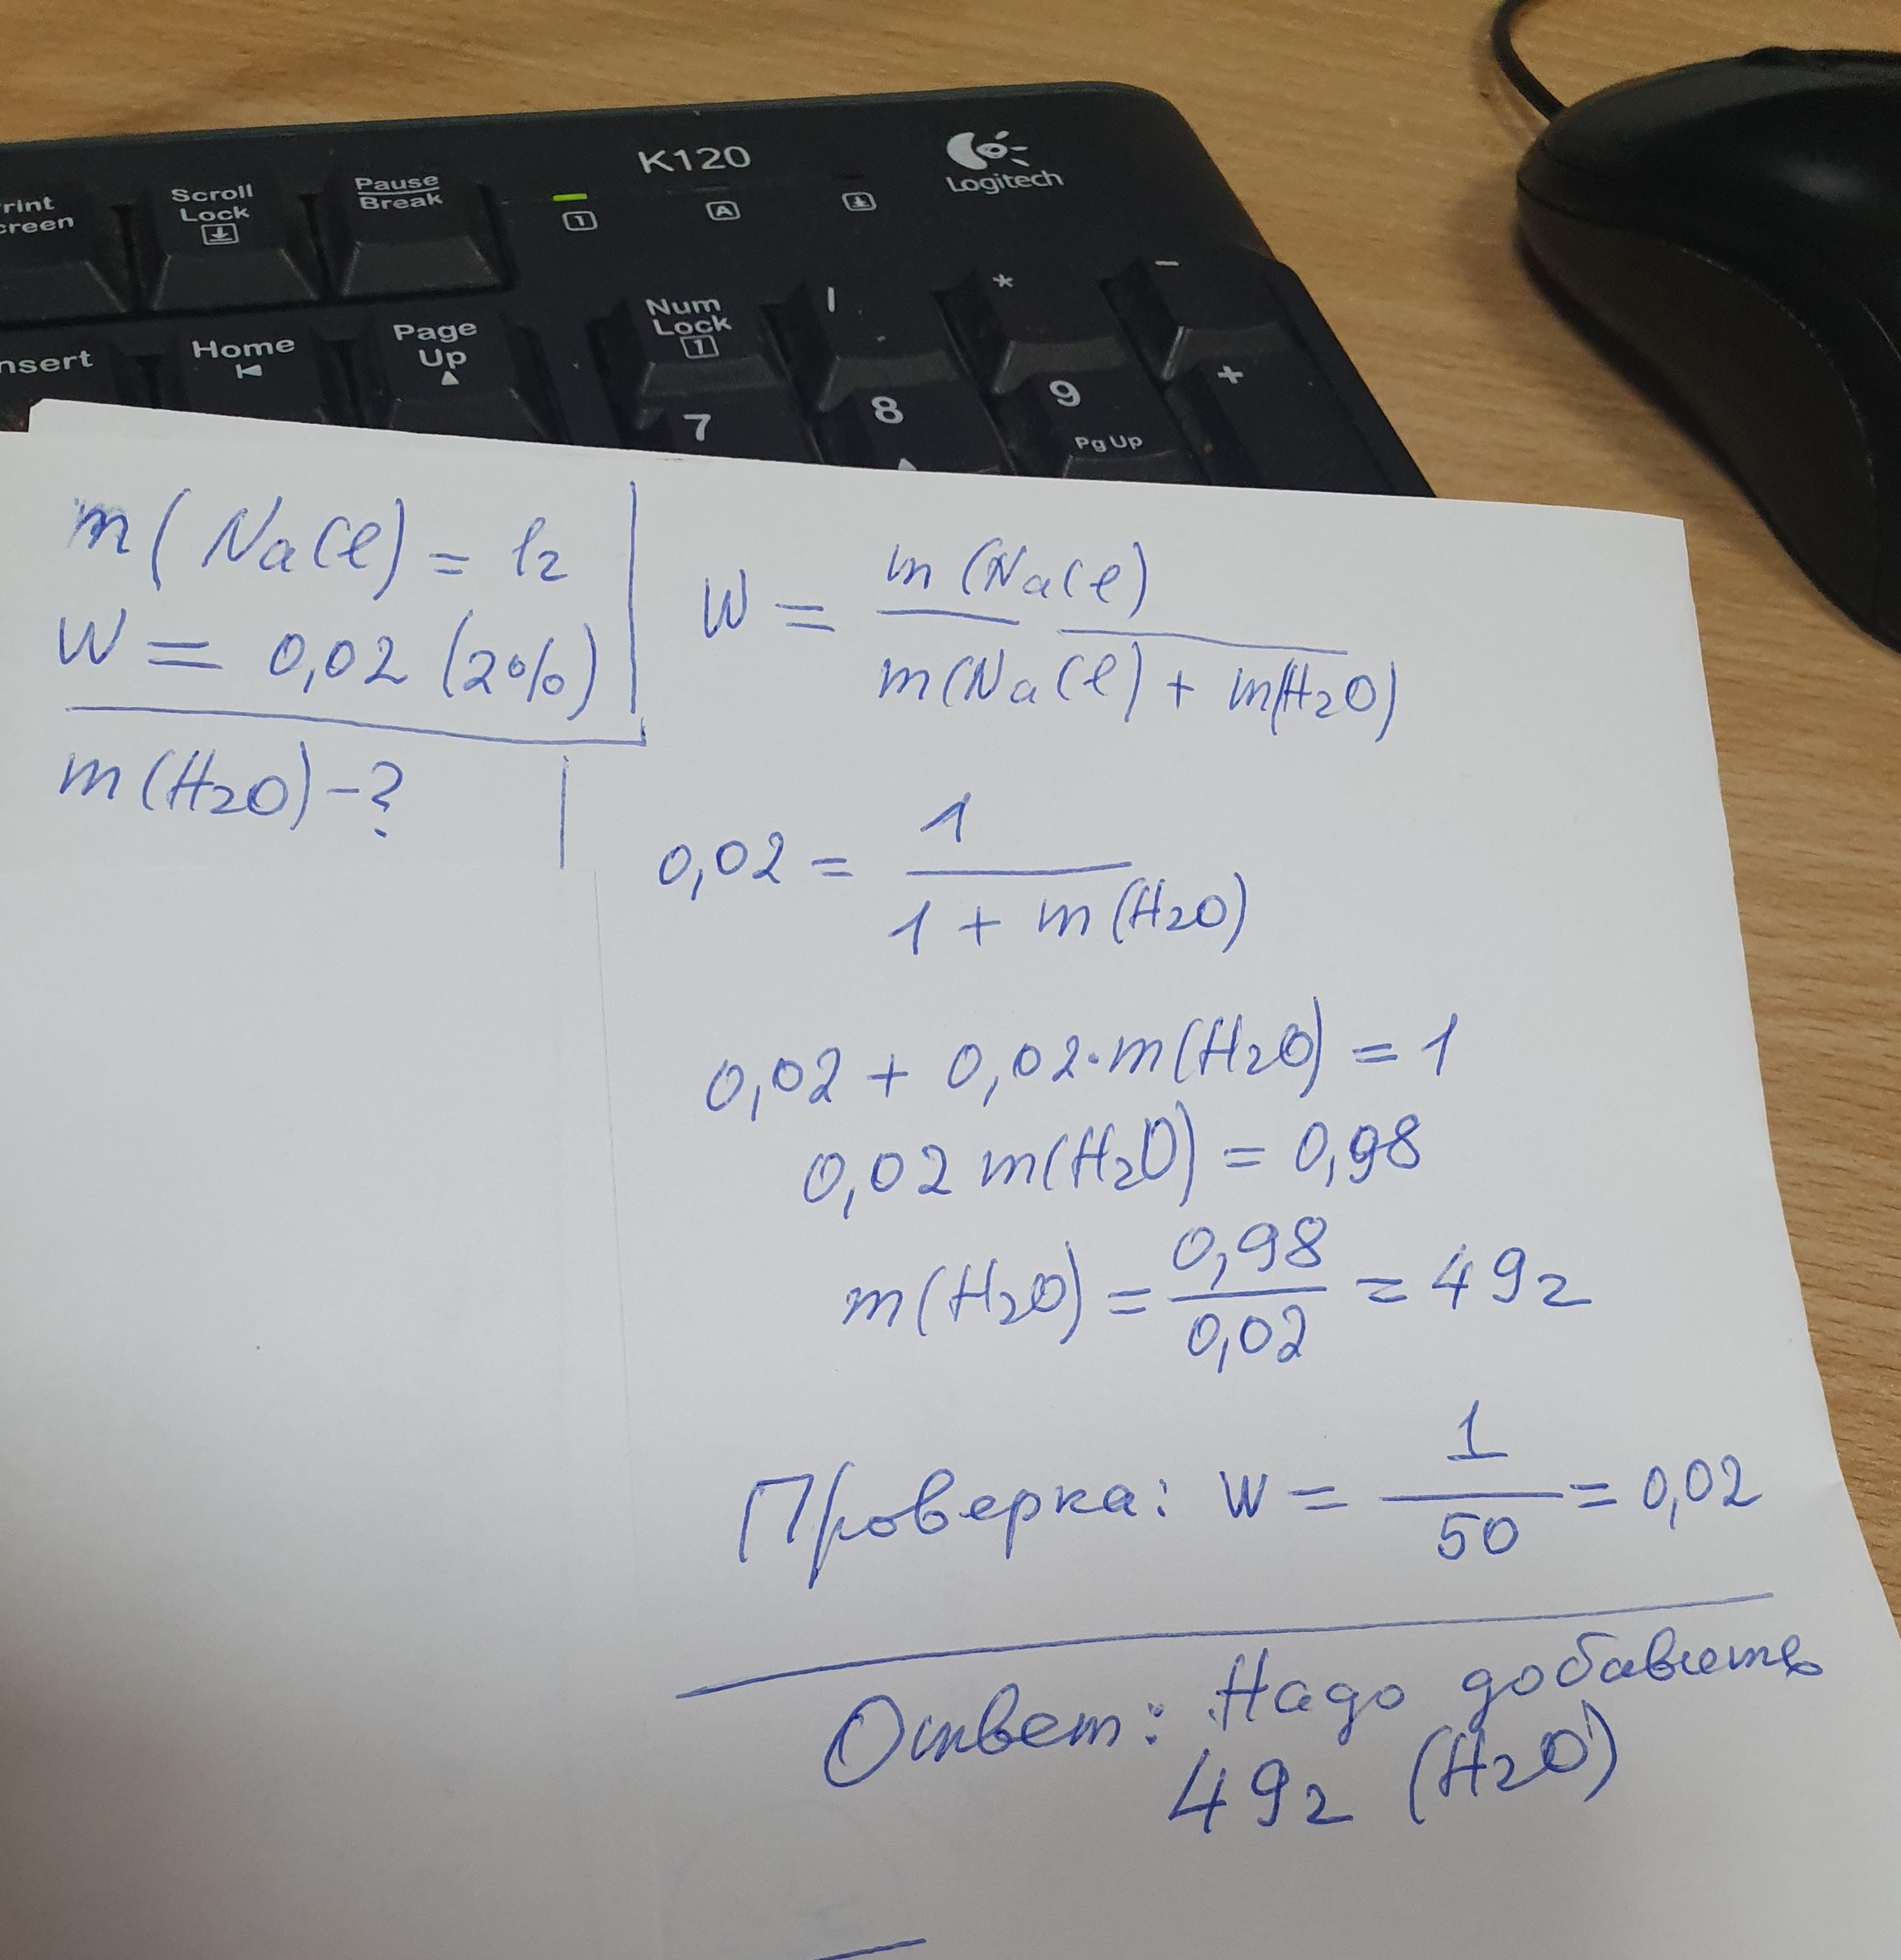 K120
Logitech
rint
creen
Scroll
Lock
Pause
Break
1
A
nsert
Home
Page
Up
Num
Lock
1
/
*
-
7
8
9
Pg Up
+
m(NaCl) = 1г
W = 0,02 (2%)
m(H2O) - ?
W = m(NaCl) / m(NaCl) + m(H2O)
0,02 = 1 / 1 + m(H2O)
0,02 + 0,02·m(H2O) = 1
0,02 m(H2O) = 0,98
m(H2O) = 0,98 / 0,02 = 49г
Проверка: W = 1 / 50 = 0,02
Ответ: Надо добавить
49г (H2O)